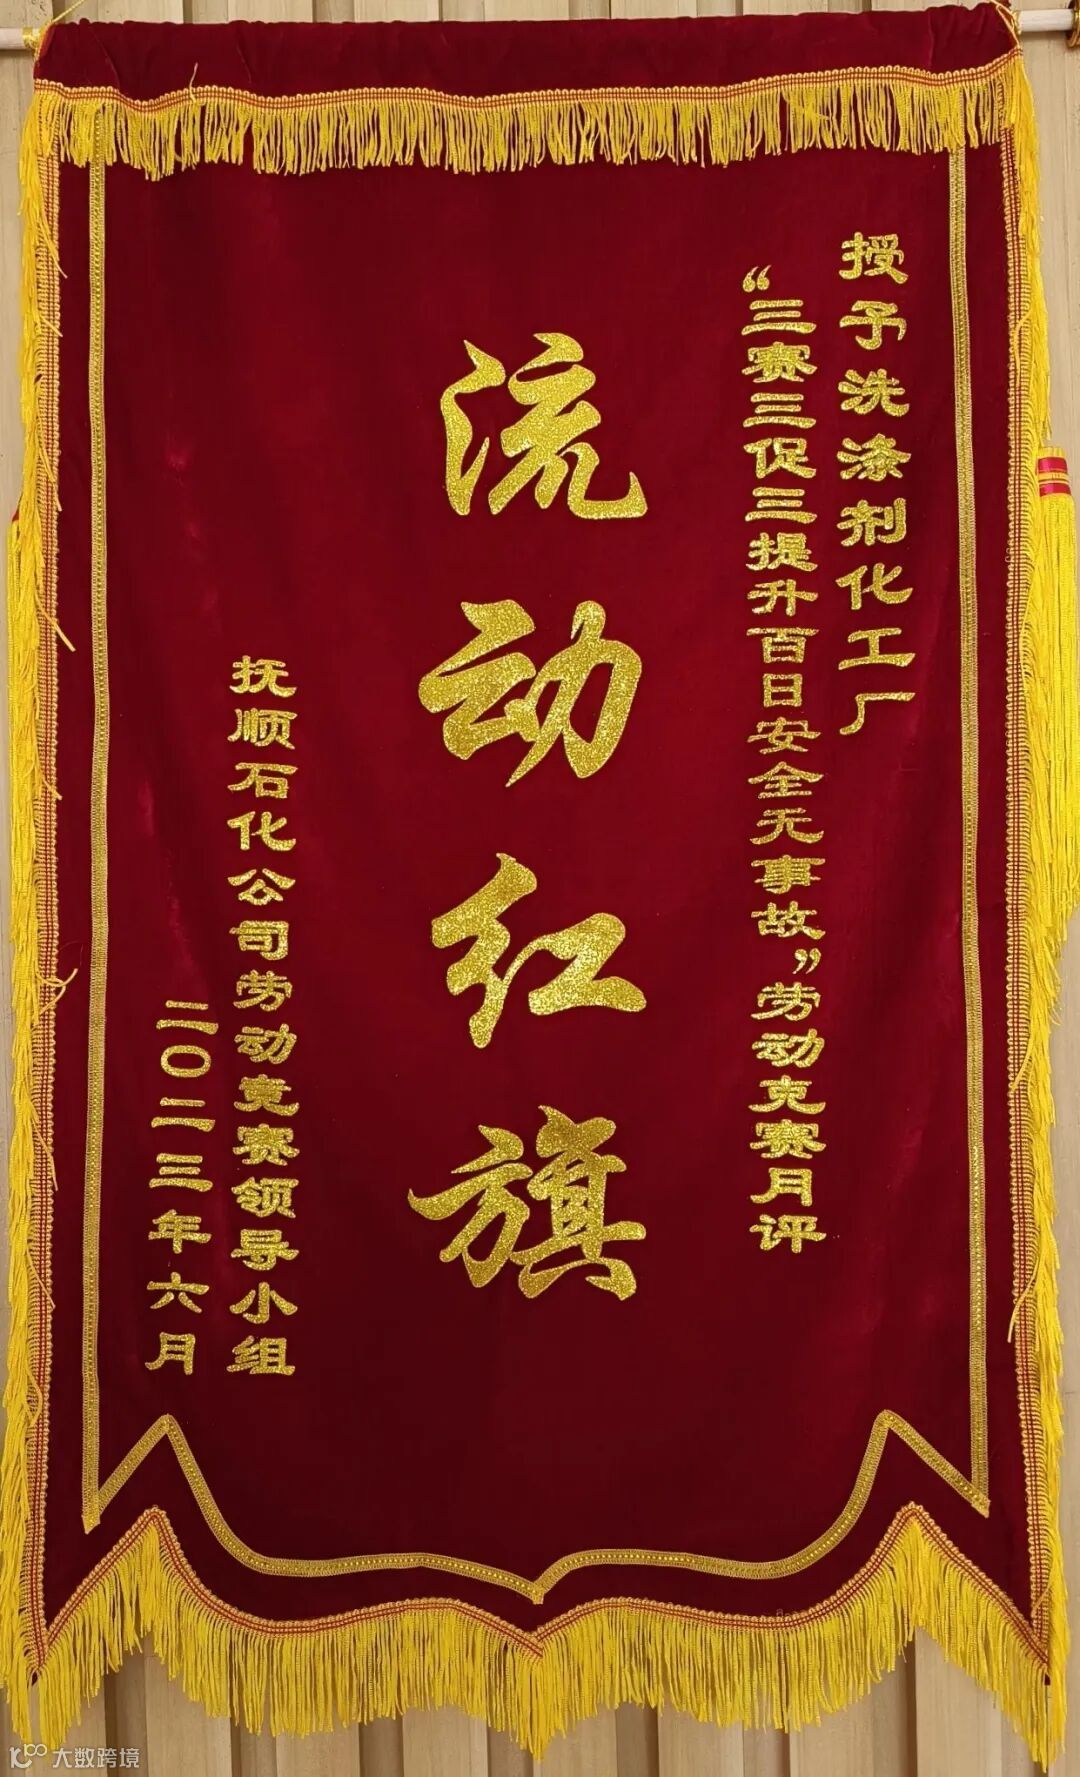 授予洗涤剂化工厂
“三赛三促三提升百日安全无事故”劳动竞赛月评
流动红旗
抚顺石化公司劳动竞赛领导小组
二〇二三年六月
大数跨境